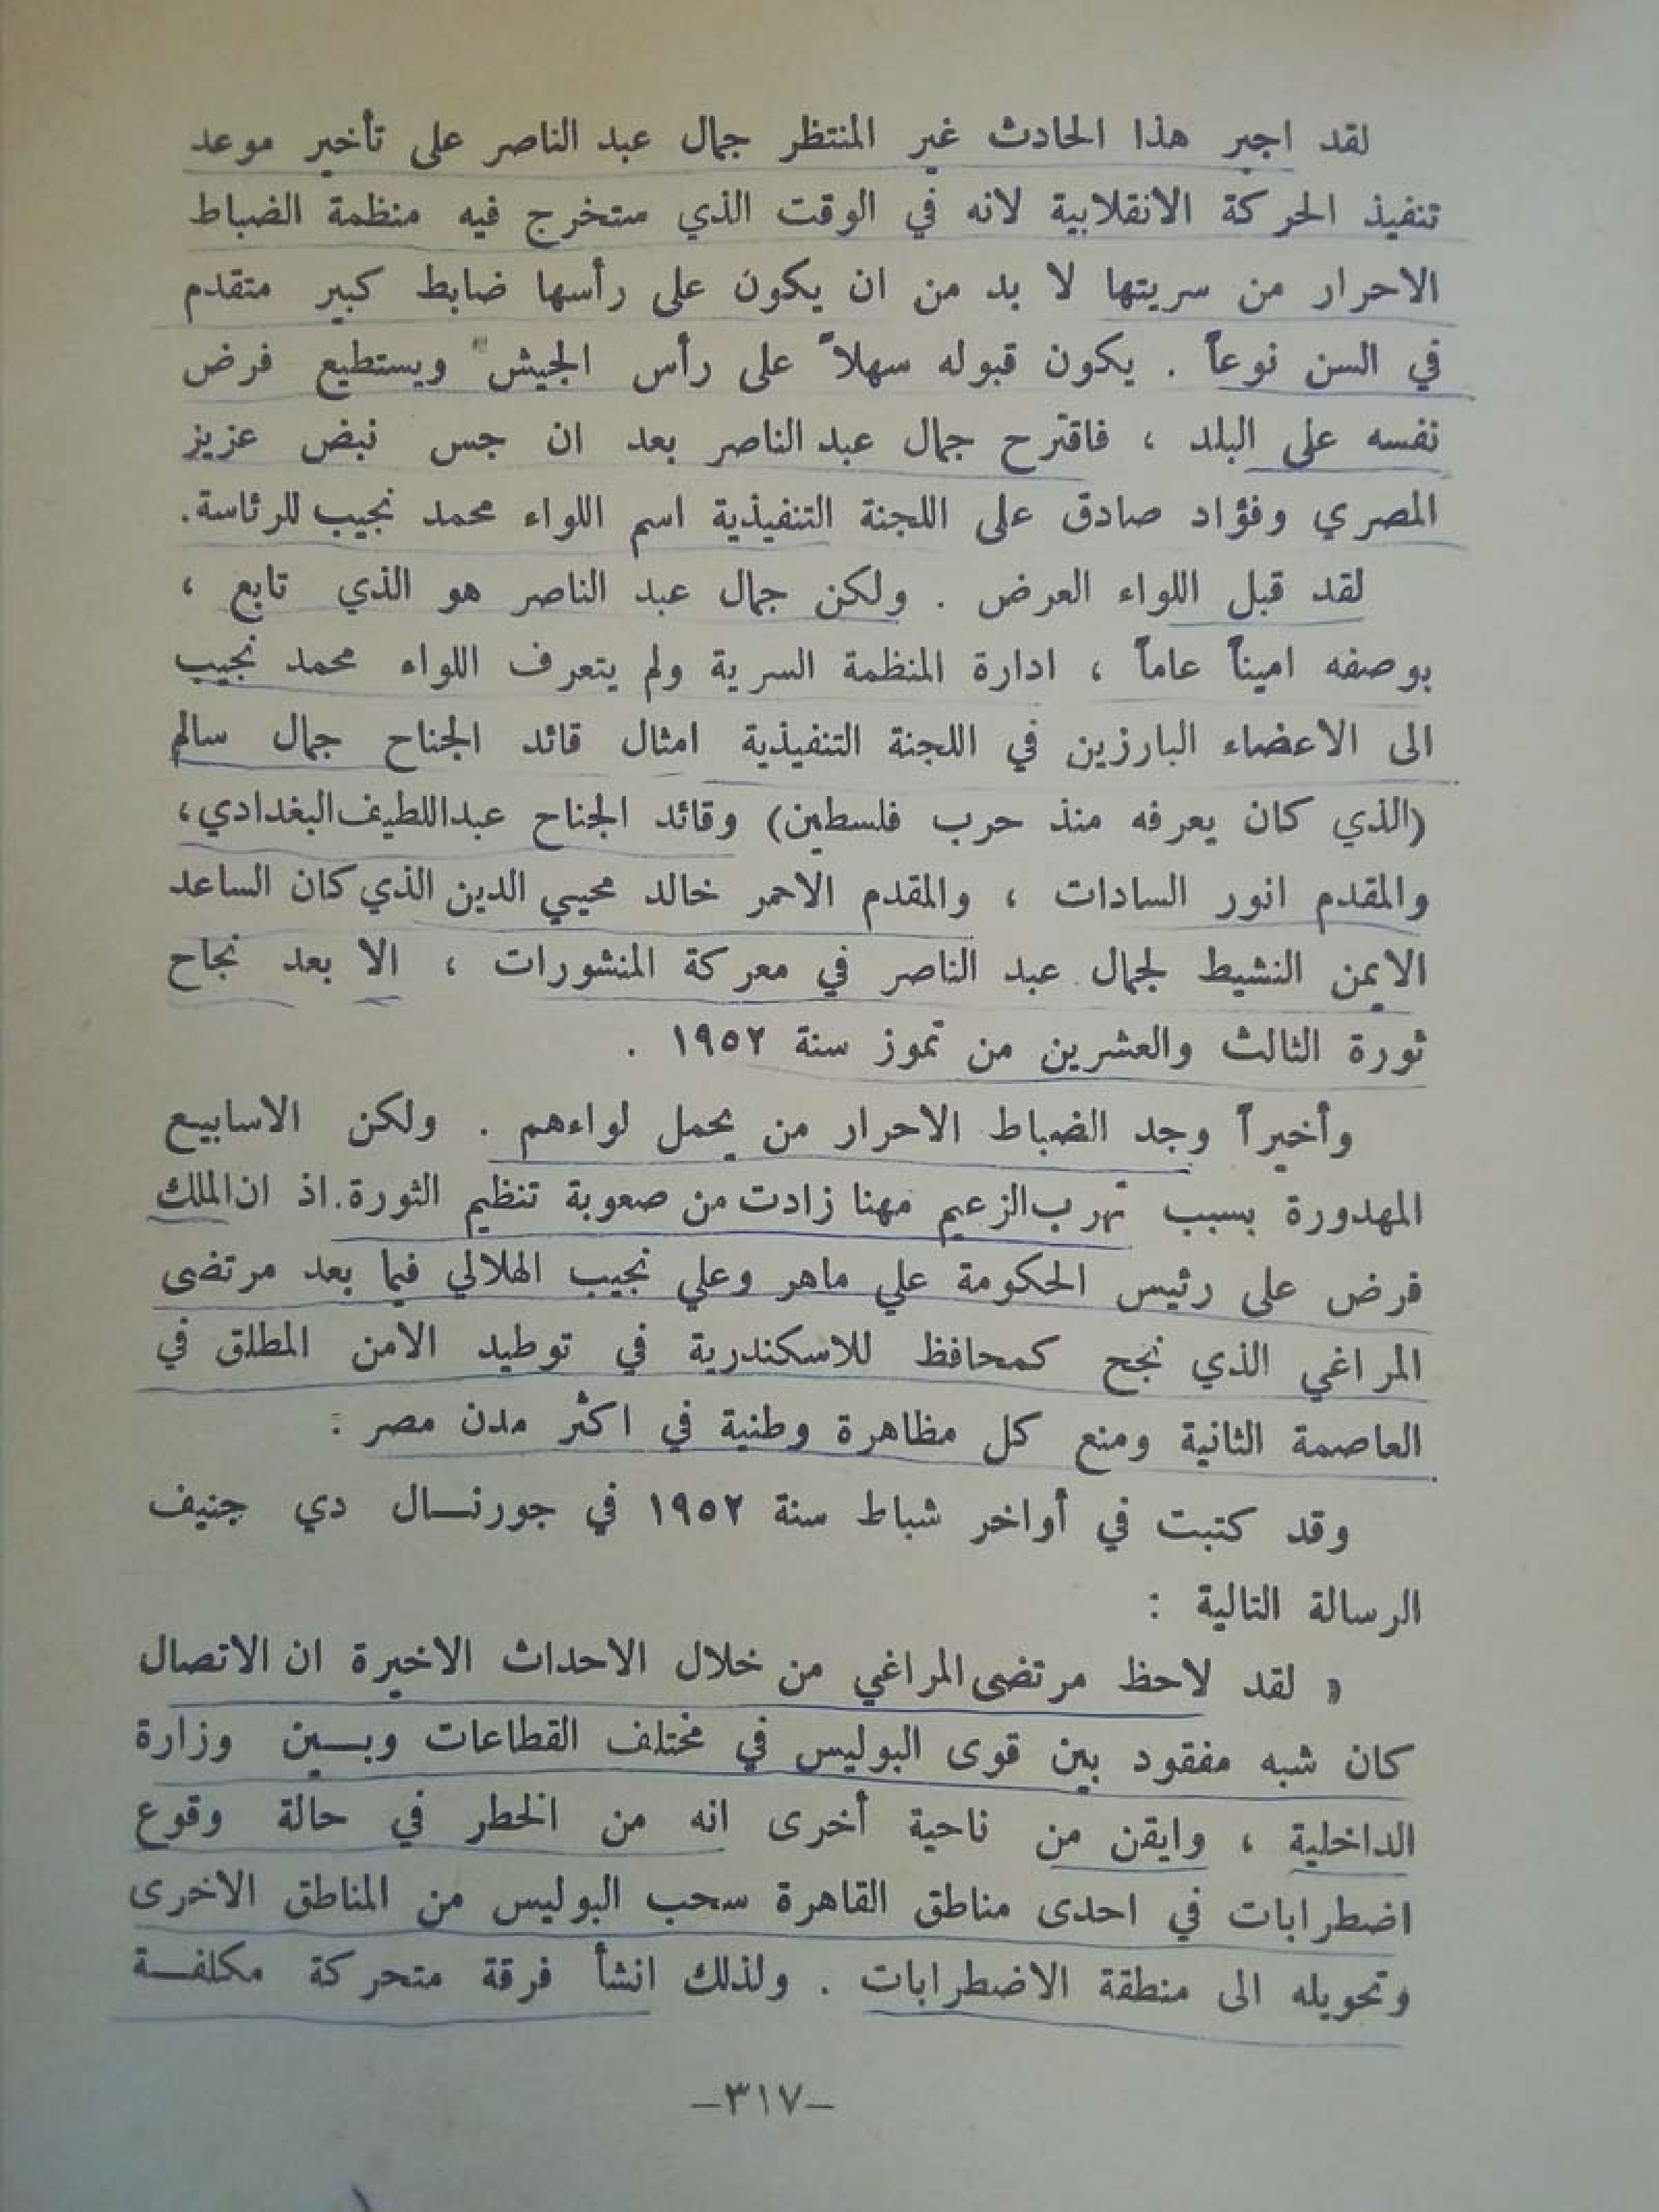 لقد اجبر هذا الحادث غير المنتظر جمال عبد الناصر على تأخير موعد
تنفيذ الحركة الانقلابية لانه في الوقت الذي ستخرج فيه منظمة الضباط
الاحرار من سريتها لا بد من ان يكون على رأسها ضابط كبير متقدم
في السن نوعاً . يكون قبوله سهلاً على رأس الجيش ويستطيع فرض
نفسه على البلد ، فاقترح جمال عبد الناصر بعد ان جس نبض عزيز
المصري وفؤاد صادق على اللجنة التنفيذية اسم اللواء محمد نجيب للرئاسة.
لقد قبل اللواء العرض . ولكن جمال عبد الناصر هو الذي تابع ،
بوصفه اميناً عاماً ، ادارة المنظمة السرية ولم يتعرف اللواء محمد نجيب
الى الاعضاء البارزين في اللجنة التنفيذية امثال قائد الجناح جمال سالم
(الذي كان يعرفه منذ حرب فلسطين) وقائد الجناح عبد اللطيف البغدادي،
والمقدم انور السادات ، والمقدم الاحمر خالد محيي الدين الذي كان الساعد
الايمن النشيط لجمال عبد الناصر في معركة المنشورات ، الا بعد نجاح
ثورة الثالث والعشرين من تموز سنة ١٩٥٢ .
وأخيراً وجد الضباط الاحرار من يحمل لواءهم . ولكن الاسابيع
المهدورة بسبب تهرب الزعيم مهنا زادت من صعوبة تنظيم الثورة. اذ ان الملك
فرض على رئيس الحكومة علي ماهر وعلي نجيب الهلالي فيما بعد مرتضى
المراغي الذي نجح كمحافظ للاسكندرية في توطيد الامن المطلق في
العاصمة الثانية ومنع كل مظاهرة وطنية في اكثر مدن مصر :
وقد كتبت في أواخر شباط سنة ١٩٥٢ في جورنال دي جنيف
الرسالة التالية :
« لقد لاحظ مرتضى المراغي من خلال الاحداث الاخيرة ان الاتصال
كان شبه مفقود بين قوى البوليس في مختلف القطاعات وبين وزارة
الداخلية ، وايقن من ناحية أخرى انه من الخطر في حالة وقوع
اضطرابات في احدى مناطق القاهرة سحب البوليس من المناطق الاخرى
وتحويله الى منطقة الاضطرابات . ولذلك انشأ فرقة متحركة مكلفة
–٣١٧–